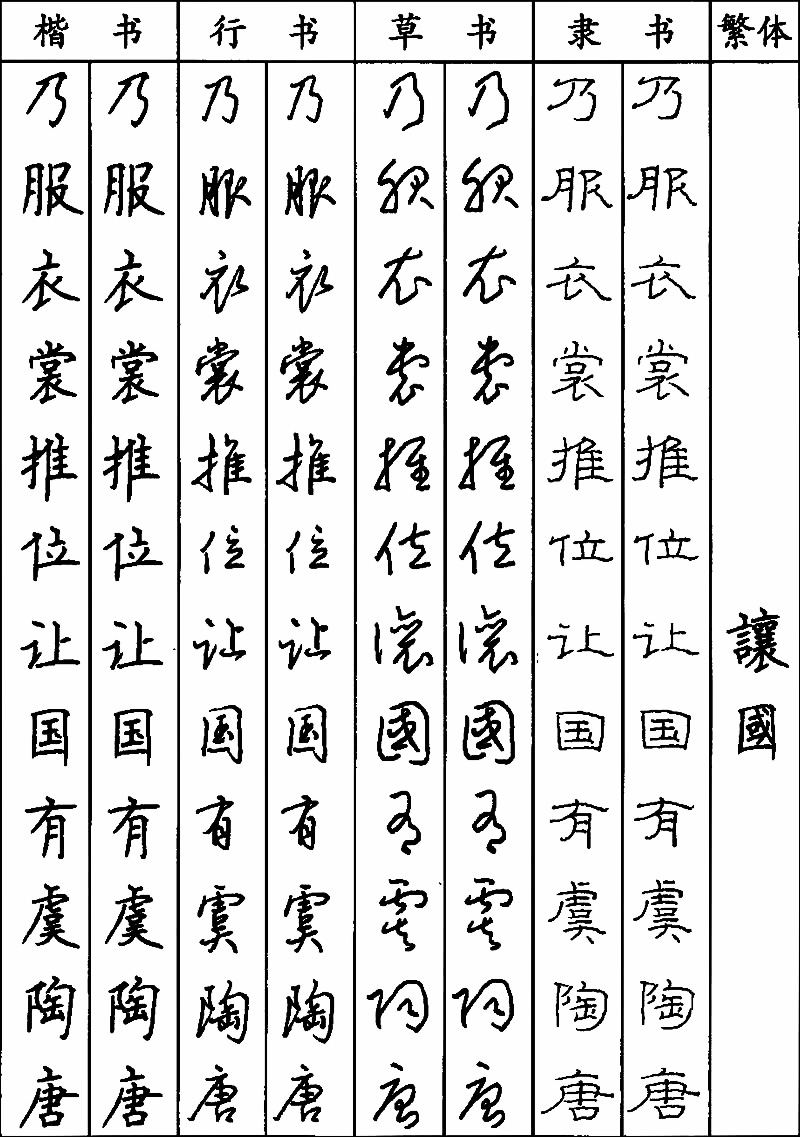 楷书 行书 草书 隶书 繁体
乃 乃 乃 乃 乃 乃 乃 乃
服 服 服 服 服 服 服 服
衣 衣 衣 衣 衣 衣 衣 衣
裳 裳 裳 裳 裳 裳 裳 裳
推 推 推 推 推 推 推 推
位 位 位 位 位 位 位 位
让 让 让 让 讓 讓 让 让 讓
国 国 国 国 國 國 国 国 國
有 有 有 有 有 有 有 有
虞 虞 虞 虞 虞 虞 虞 虞
陶 陶 陶 陶 陶 陶 陶 陶
唐 唐 唐 唐 唐 唐 唐 唐